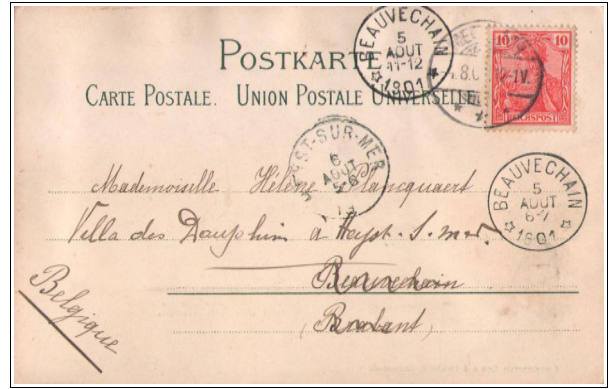 POSTKARTE
CARTE POSTALE. UNION POSTALE UNIVERSELLE
BEAUVECHAIN
5
AOUT
11-12
1901
10 10
REICHSPOST
HEYST-SUR-MER
6
AOUT
BEAUVECHAIN
5
AOUT
6-7
1901
Mademoiselle Hélène Plancquaert
Villa des Dauphins à Heyst. S. mer.
Beauvechain
(Brabant)
Belgique